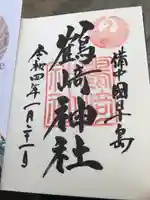 備中國早島
鶴崎神社
令和四年一月二十一日